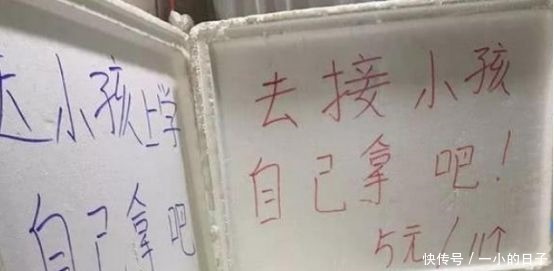 小孩上学
自己拿吧
去接小孩
自己拿吧!
5元/1个
快传号/一小的日子